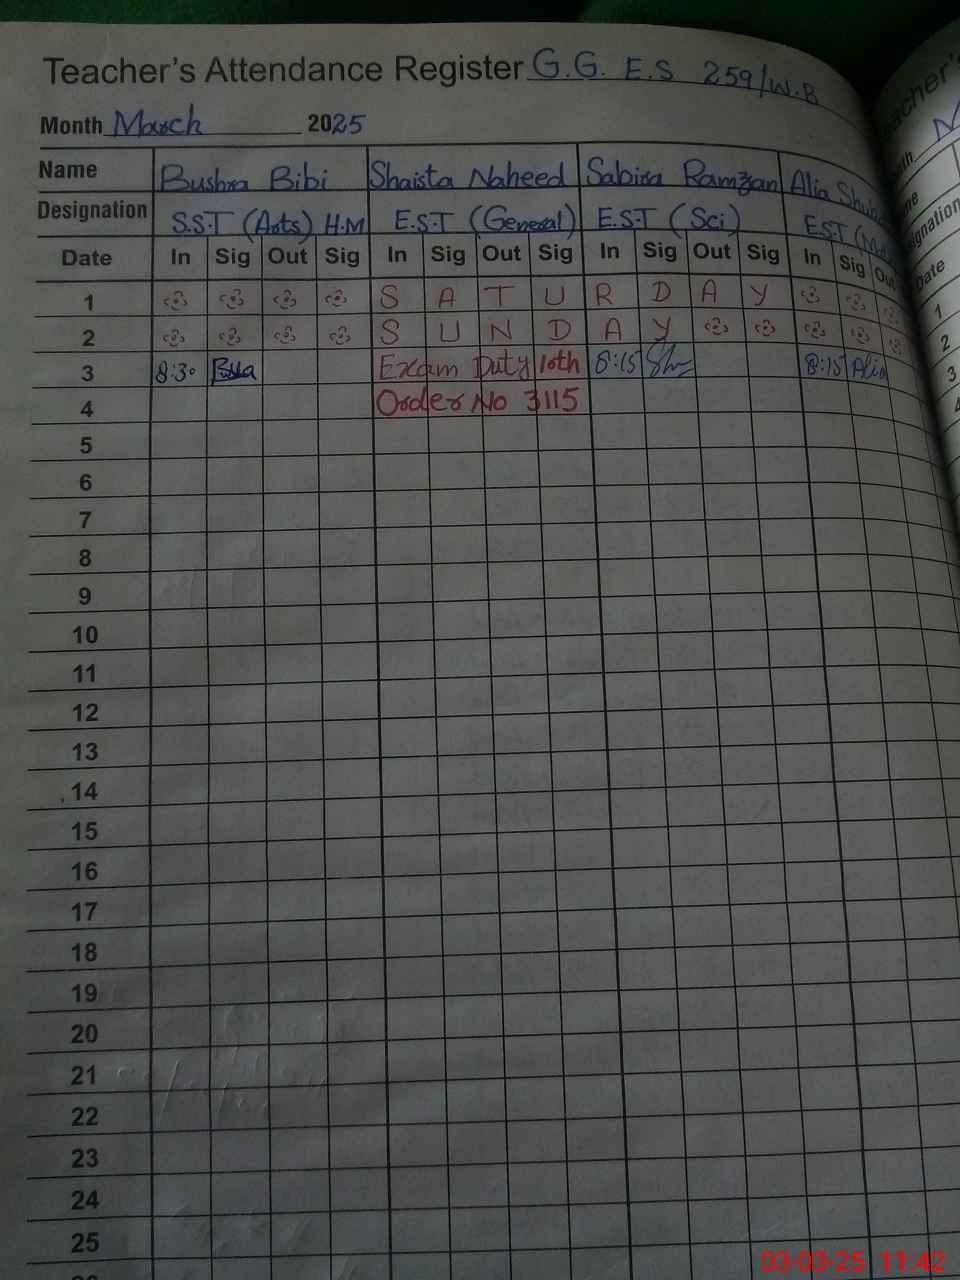 Teacher's Attendance Register G.G. E.S 259/W.B
Month March 2025
Name Bushra Bibi Shaista Naheed Sabira Ramzan Alia
Designation S.S.T (Arts) H.M E.S.T (General) E.S.T (Sci) E.S.T
Date In Sig Out Sig In Sig Out Sig In Sig Out Sig In Sig Out
1 S A T U R D A Y
2 S U N D A Y
3 8:30 Exam Duty 10th 8:15 8:15 Alia
4 Order No 3115
5
6
7
8
9
10
11
12
13
14
15
16
17
18
19
20
21
22
23
24
25
Date
1
2
3
03-03-25 11:42